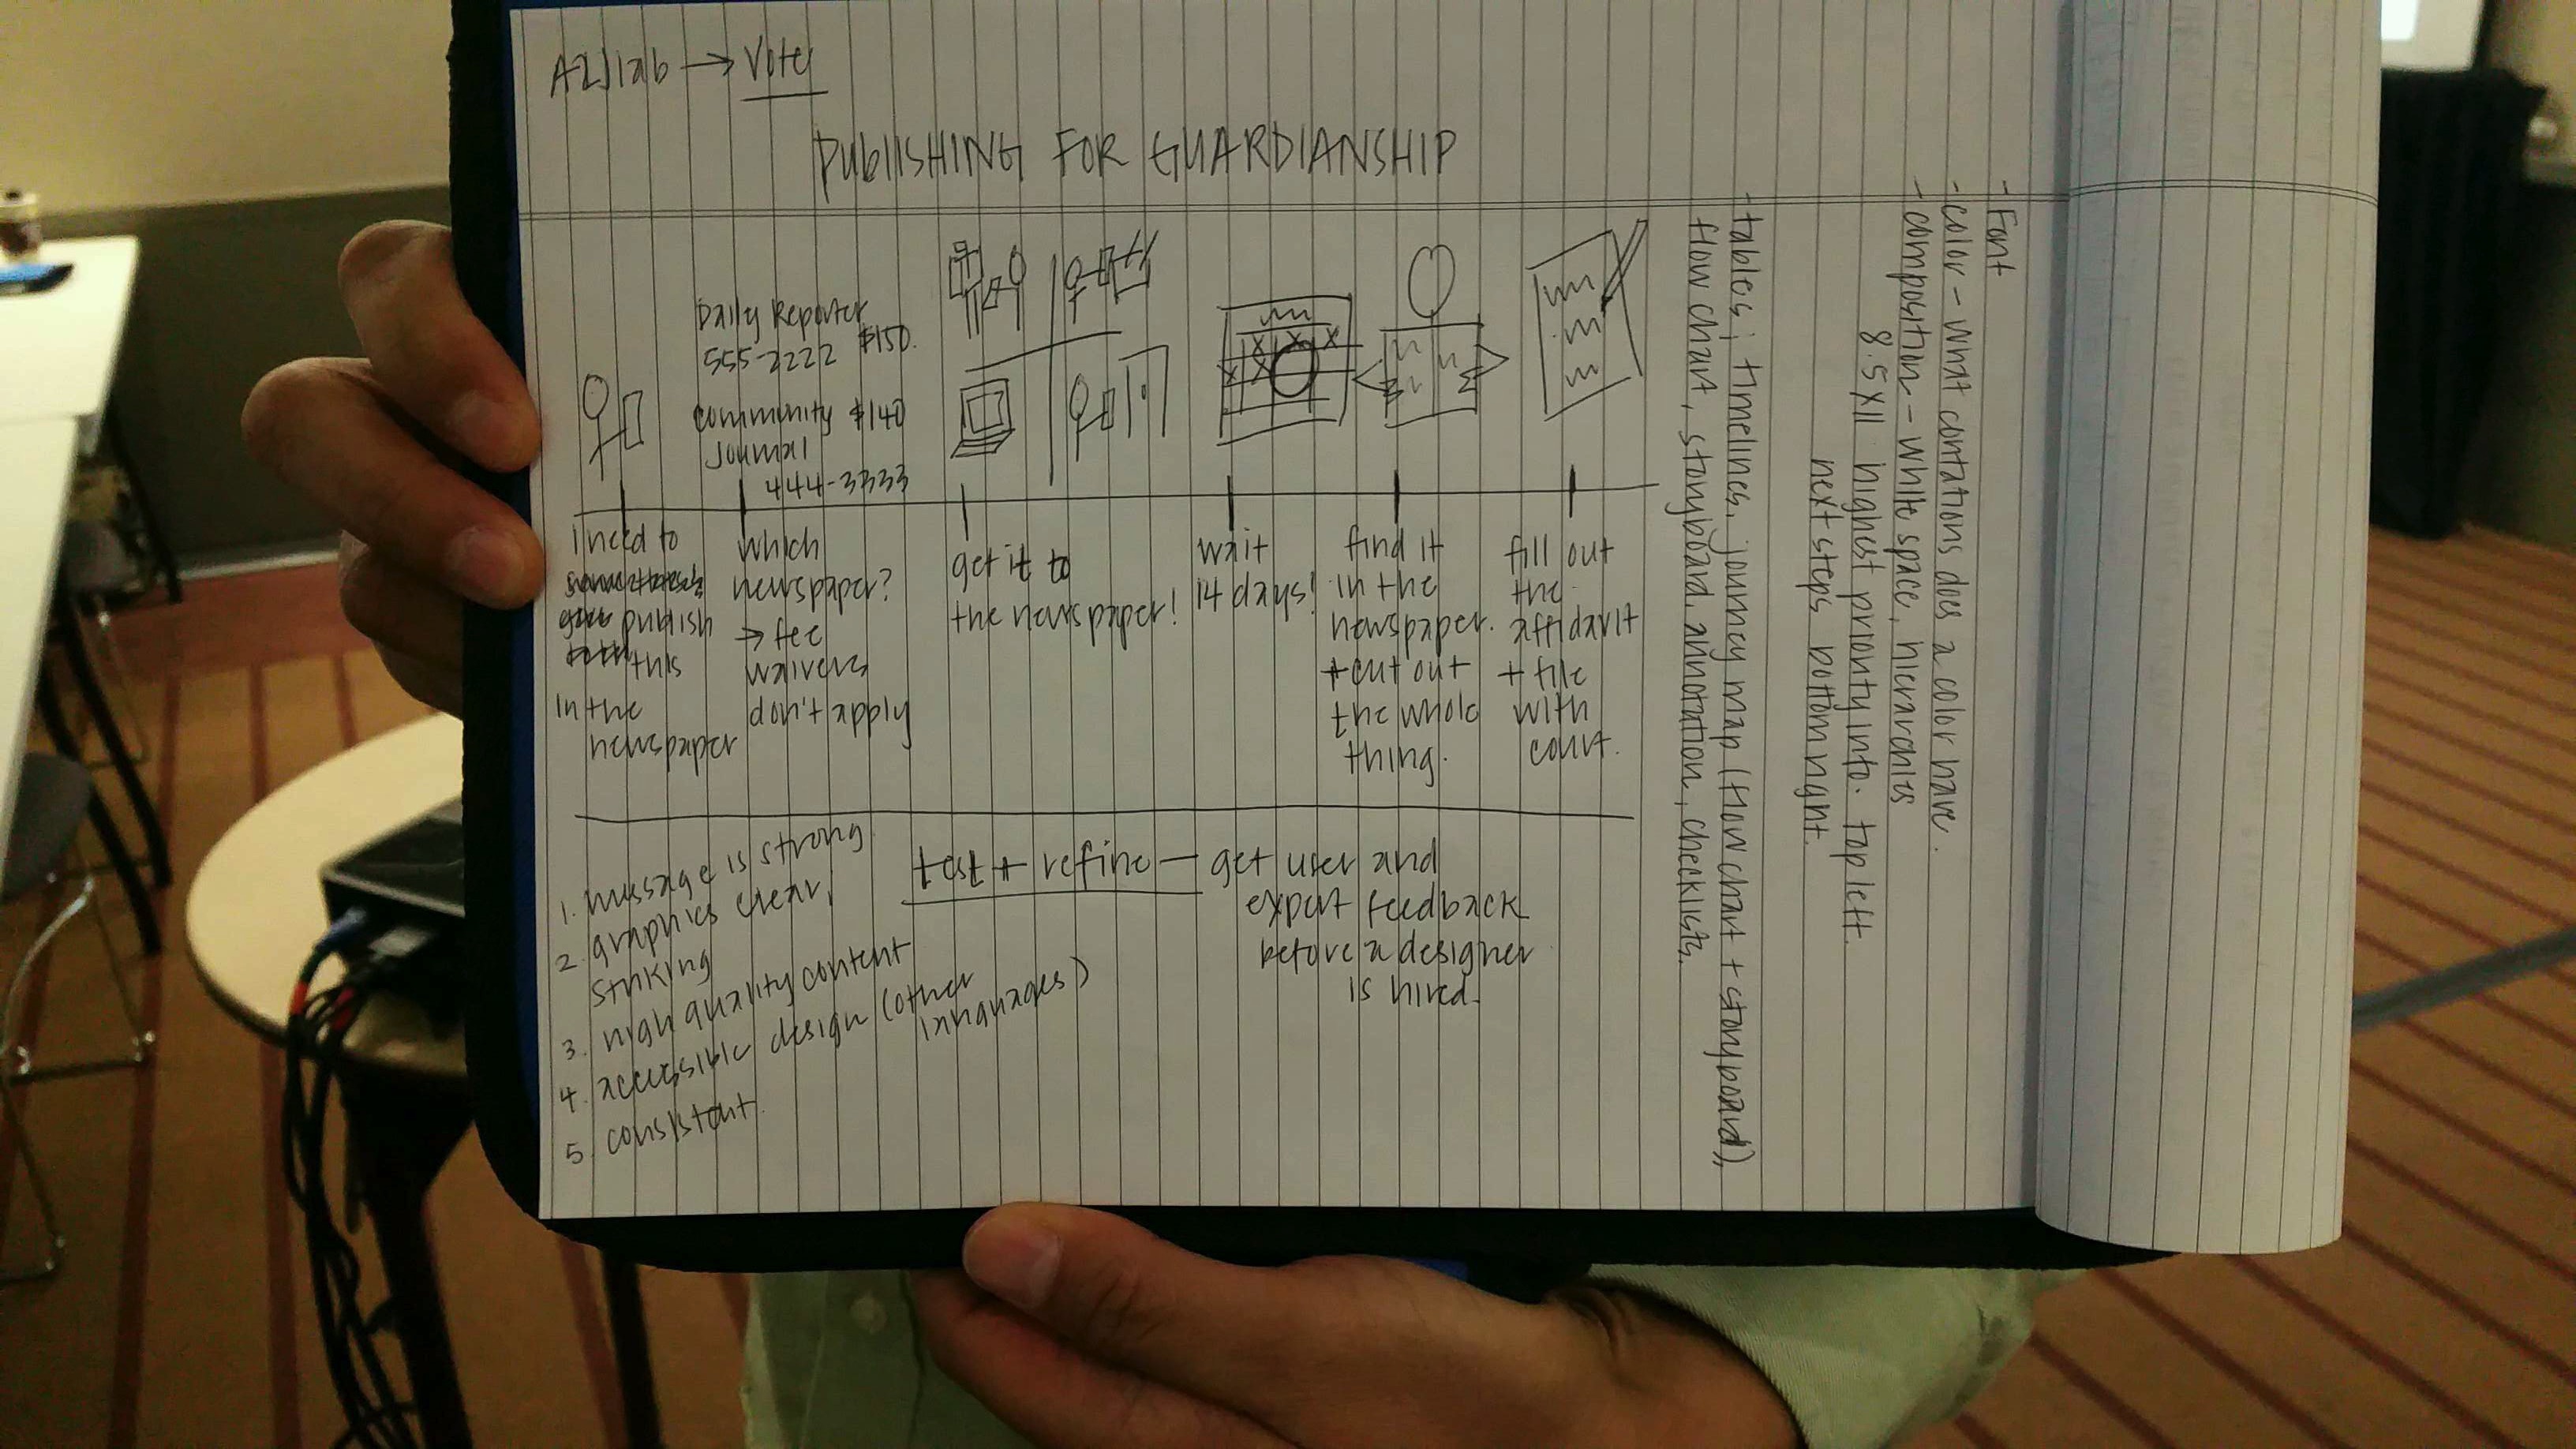 A2J lab → Vote
PUBLISHING FOR GUARDIANSHIP
Daily Reporter
555-2222 $150.
community $140
Journal
444-3333
I need to
publish
this
in the
newspaper
which
newspaper?
→ fee
waivers
don't apply
get it to
the newspaper!
wait
14 days!
find it
in the
newspaper.
+ cut out
the whole
thing.
fill out
the
affidavit
+ file
with
court.
1. message is strong
2. graphics clear,
striking
3. high quality content
4. accessible design (other
languages)
5. consistent.
test + refine — get user and
expert feedback
before a designer
is hired.
- Font
- color - what contations does a color have.
- composition - white space, hierarchies
8.5 x 11 highest priority info. top left.
next steps bottom right.
- tables, timelines, journey map (flow chart + storyboard),
flow chart, storyboard, annotation, checklists.